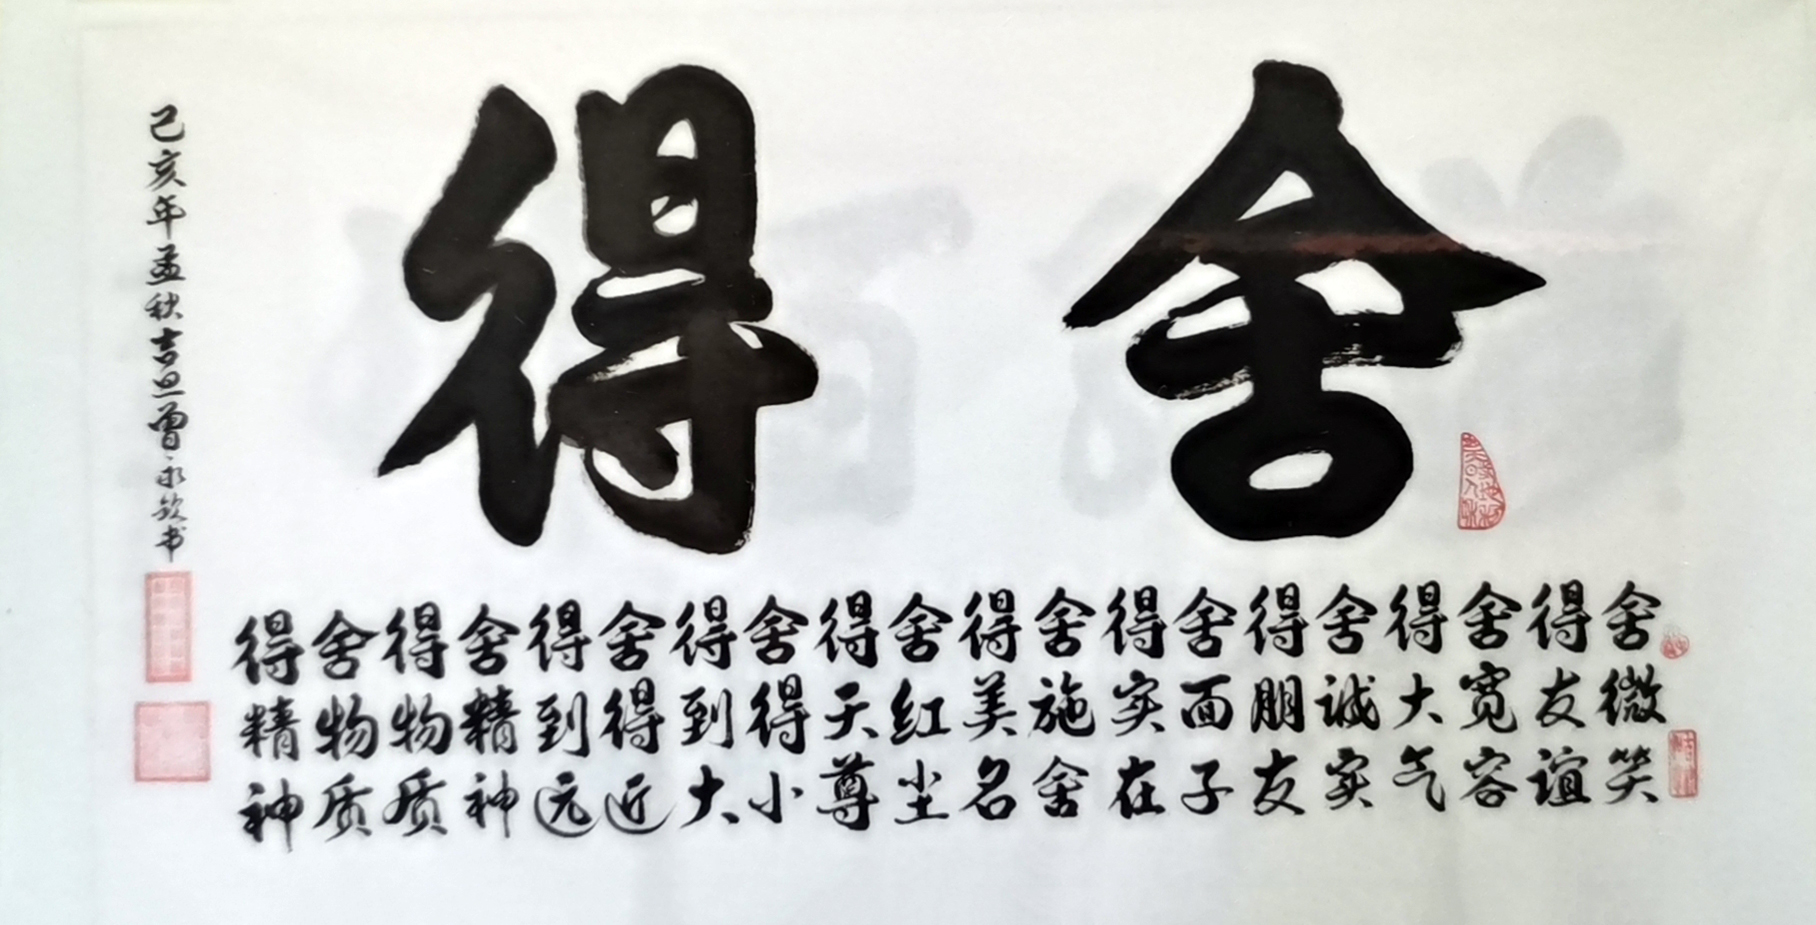 舍得
舍微笑
得友谊
舍宽容
得大气
舍诚实
得朋友
舍面子
得实在
舍施舍
得美名
舍红尘
得天尊
舍得小
得到大
舍得近
得到远
舍精神
得物质
舍物质
得精神
己亥年孟秋吉旦曾永钦书